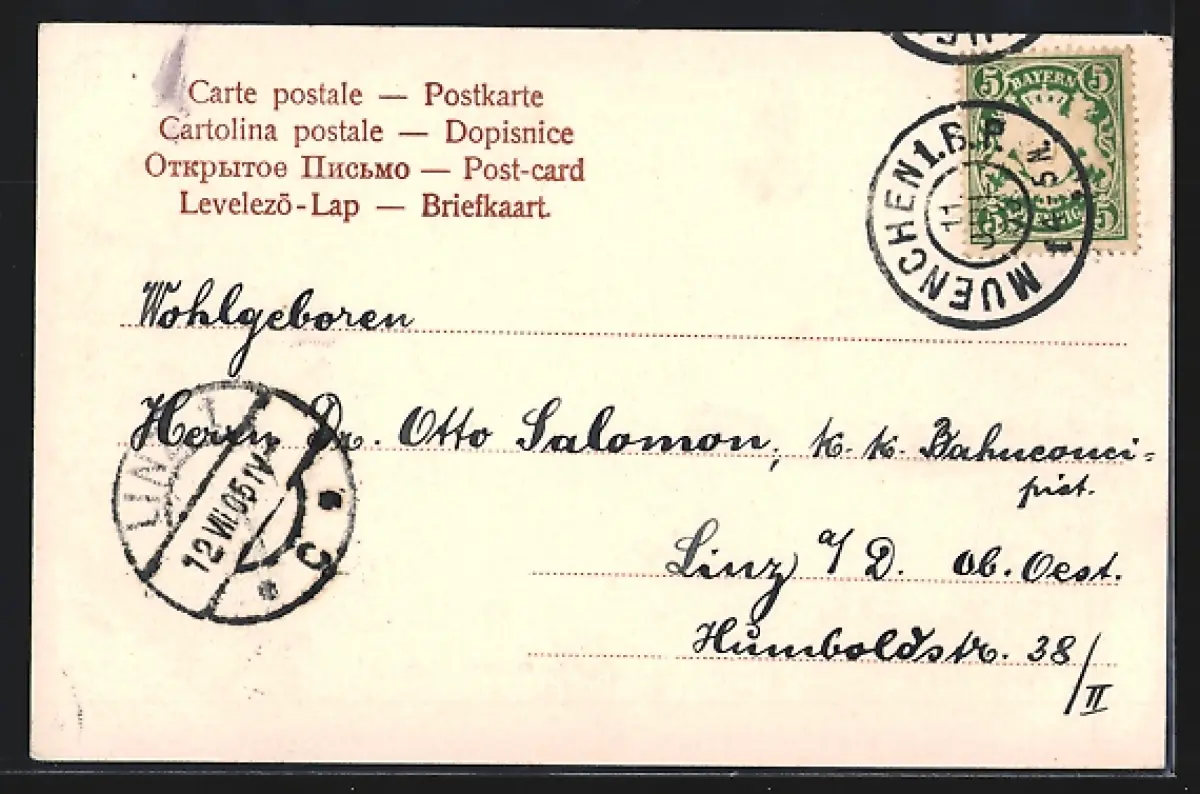 Carte postale — Postkarte
Cartolina postale — Dopisnice
Открытое Письмо — Post-card
Levelezõ-Lap — Briefkaart.
5 BAYERN 5
5 5
MUENCHEN 1. B.P.
11
5 N.
Wohlgeboren
Herrn Dr. Otto Salomon, k. k. Bahnconci=
pist.
Linz a/D. Ob. Oest.
Humboldstr. 38/II
LINZ
12 VII 05 IV
* 3 *